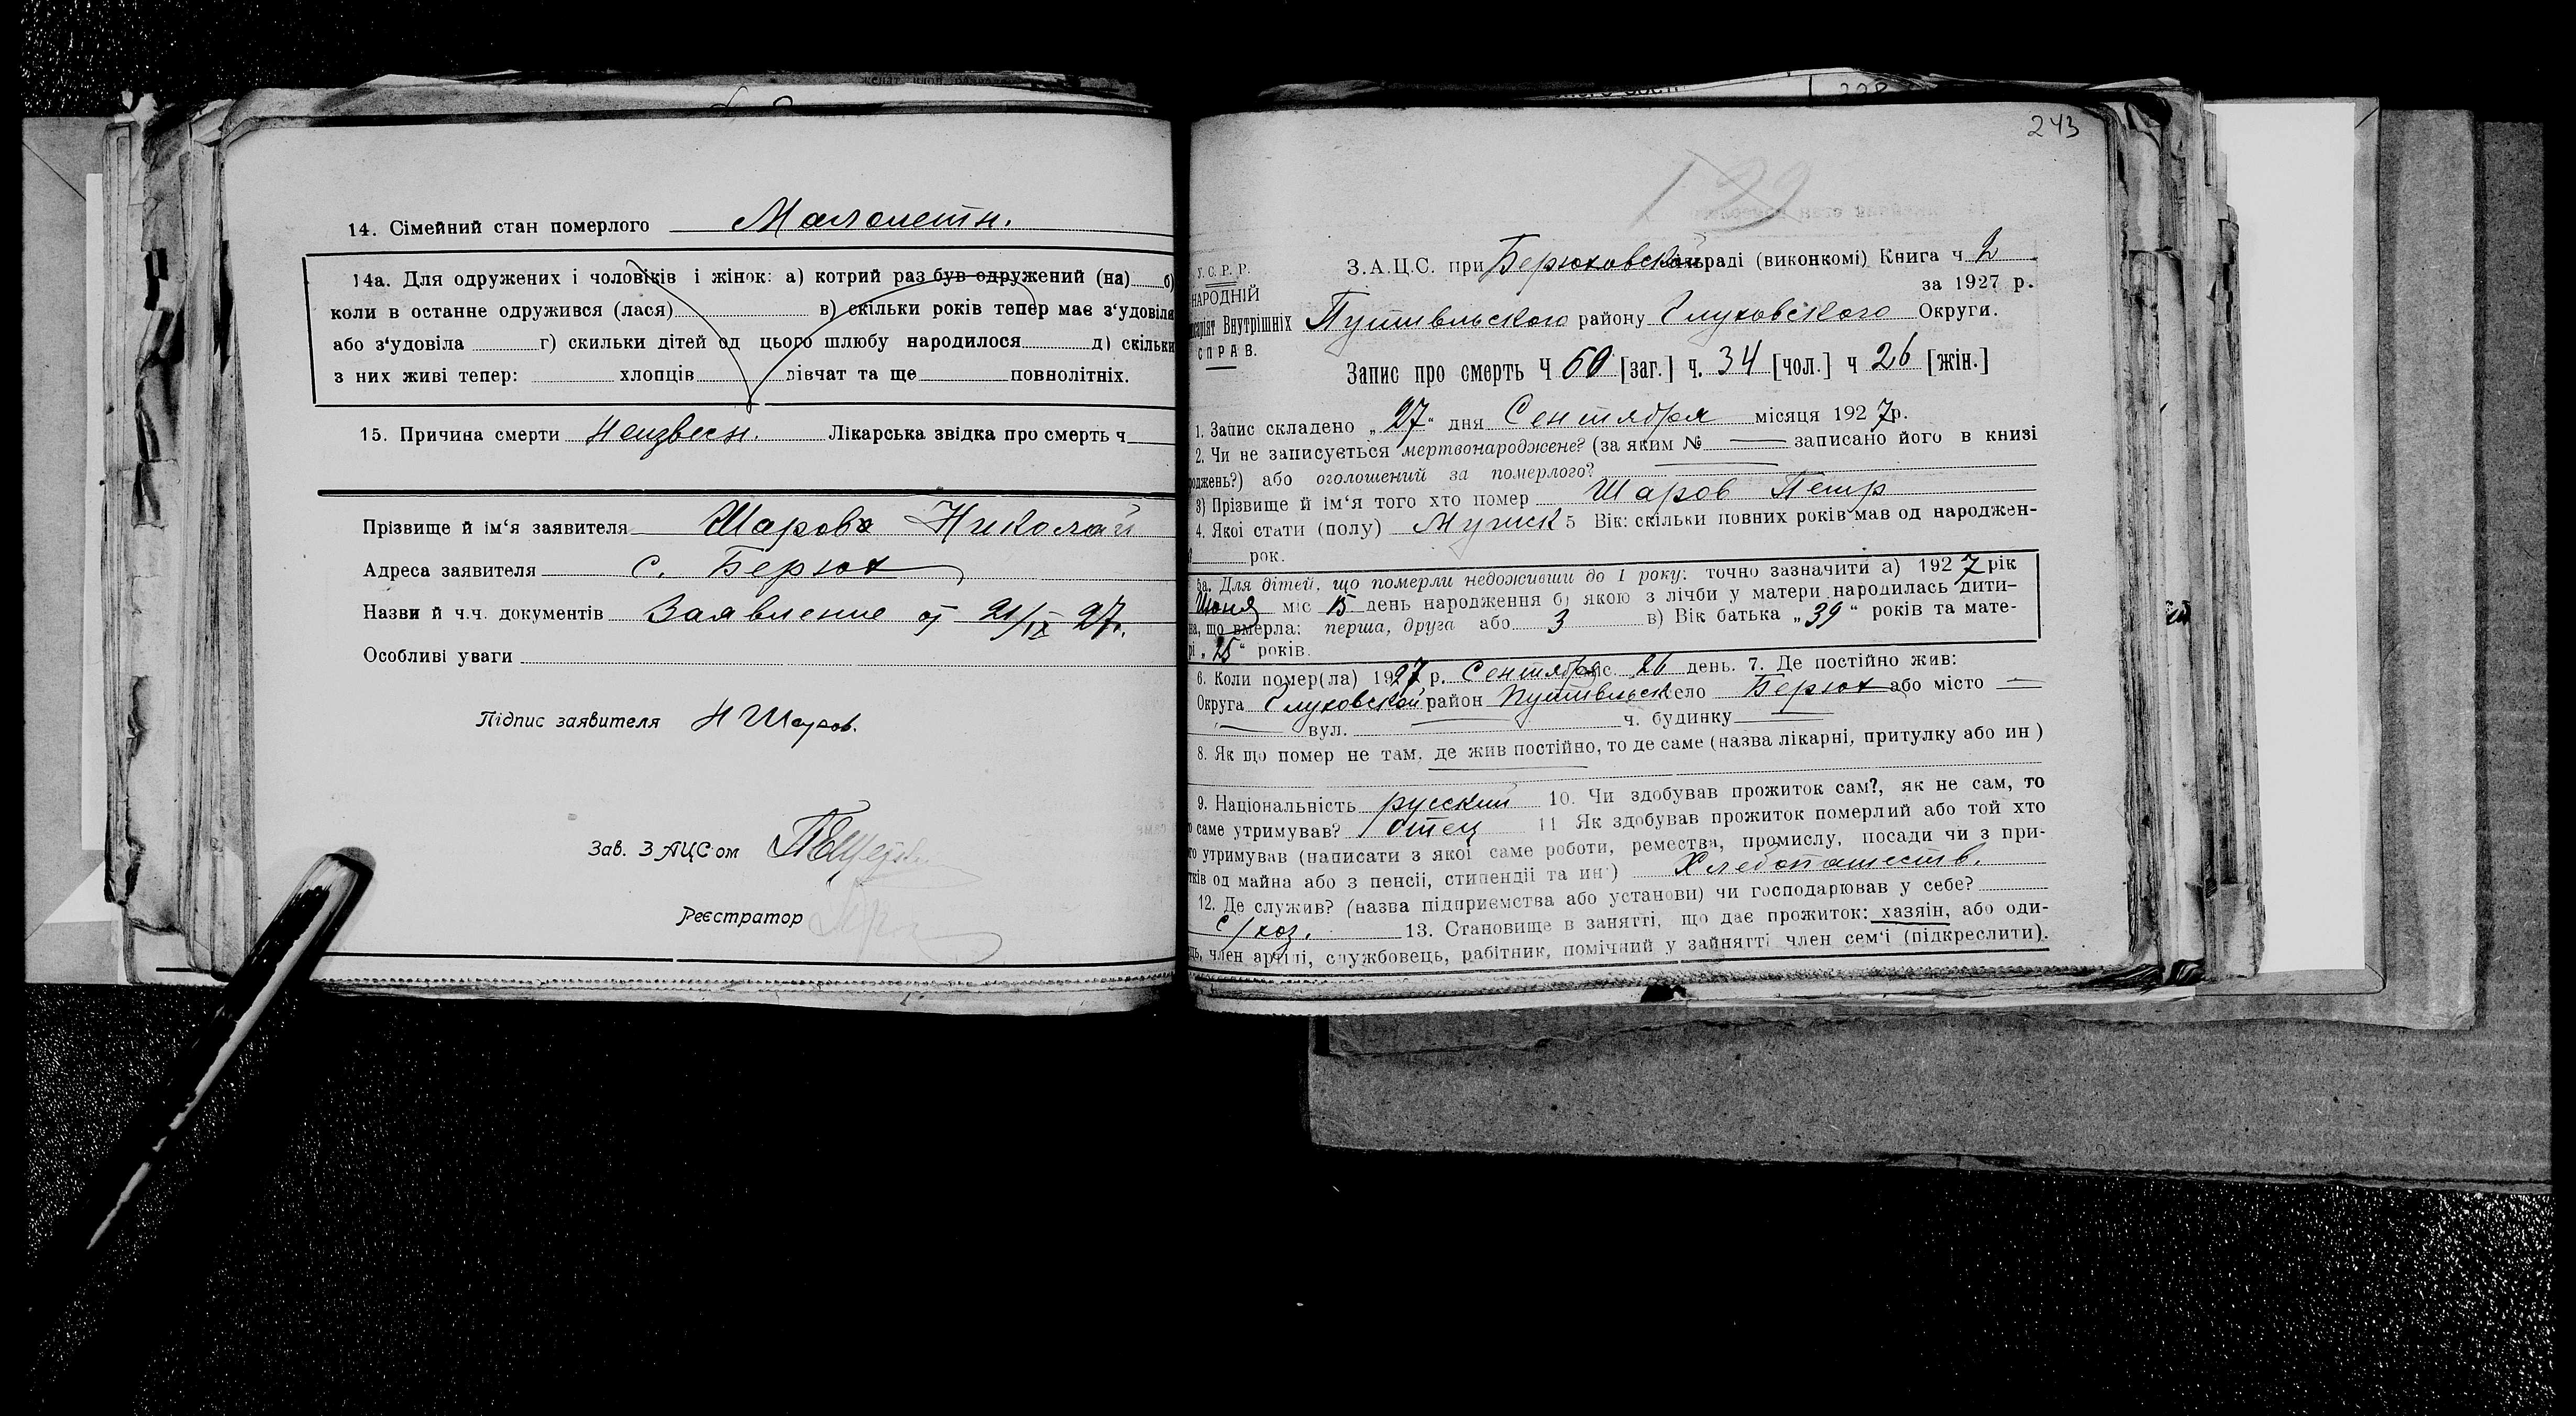 14. Сімейний стан померлого Малолетн.
14а. Для одружених і чоловіків і жінок: а) котрий раз був одружений (на) б)
коли в останне одружився (лася) в) скільки років тепер має з'удовіля
або з'удовіла г) скильки дітей од цього шлюбу народилося д) скільки
з них живі тепер: хлопців дівчат та ще повнолітніх.
15. Причина смерти Неизвесн. Лікарська звідка про смерть ч
Прізвище й ім'я заявителя Шарова Николай
Адреса заявителя с. Берюх
Назви й ч.ч. документів Заявление от 21/IX 27г.
Особливі уваги
Підпис заявителя Н Шаров.
Зав. ЗАЦС'ом
Реєстратор
243
У.С.Р.Р.
НАРОДНІЙ
Внутрішніх
СПРАВ.
З.А.Ц.С. при Берюховской раді (виконкомі) Книга ч 2
за 1927 р.
Путивльского району Глуховского Округи.
Запис про смерть Ч 60 [заг.] ч. 34 [чол.] ч 26 [жін.]
1. Запис складено „27" дня Сентября місяця 1927р.
2. Чи не записується мертвонароджене? (за яким № — записано його в книзі
роджень?) або оголошений за померлого?
3) Прізвище й ім'я того хто помер Шаров Петр
4. Якої стати (полу) Мужск 5 Вік: скільки повних років мав од народжен-
рок.
5а. Для дітей, що померли недоживши до 1 року: точно зазначити а) 1927 рік
Июня міс 15 день народження б) якою з лічби у матери народилась дити-
на, що вмерла: перша, друга або 3 в) Вік батька „39" років та мате-
рі „25" років.
6. Коли помер(ла) 1927 р. Сентября с. 26 день. 7. Де постійно жив:
Округа Глуховской район Путивльск село Берюх або місто —
— вул. — ч. будинку —
8. Як що помер не там, де жив постійно, то де саме (назва лікарні, притулку або ин )
9. Національність русский 10. Чи здобував прожиток сам?, як не сам, то
саме утримував? Отец 11 Як здобував прожиток померлий або той хто
го утримував (написати з якої саме роботи, ремества, промислу, посади чи з при-
тків од майна або з пенсії, стипендії та ин·) Хлебопашеств.
12. Де служив? (назва підприємства або установи) чи господарював у себе?
с/хоз. 13. Становище в занятті, що дає прожиток: хазяін, або оди-
ць, член артілі, службовець, рабітник, помічний у зайнятті член сем'і (підкреслити).